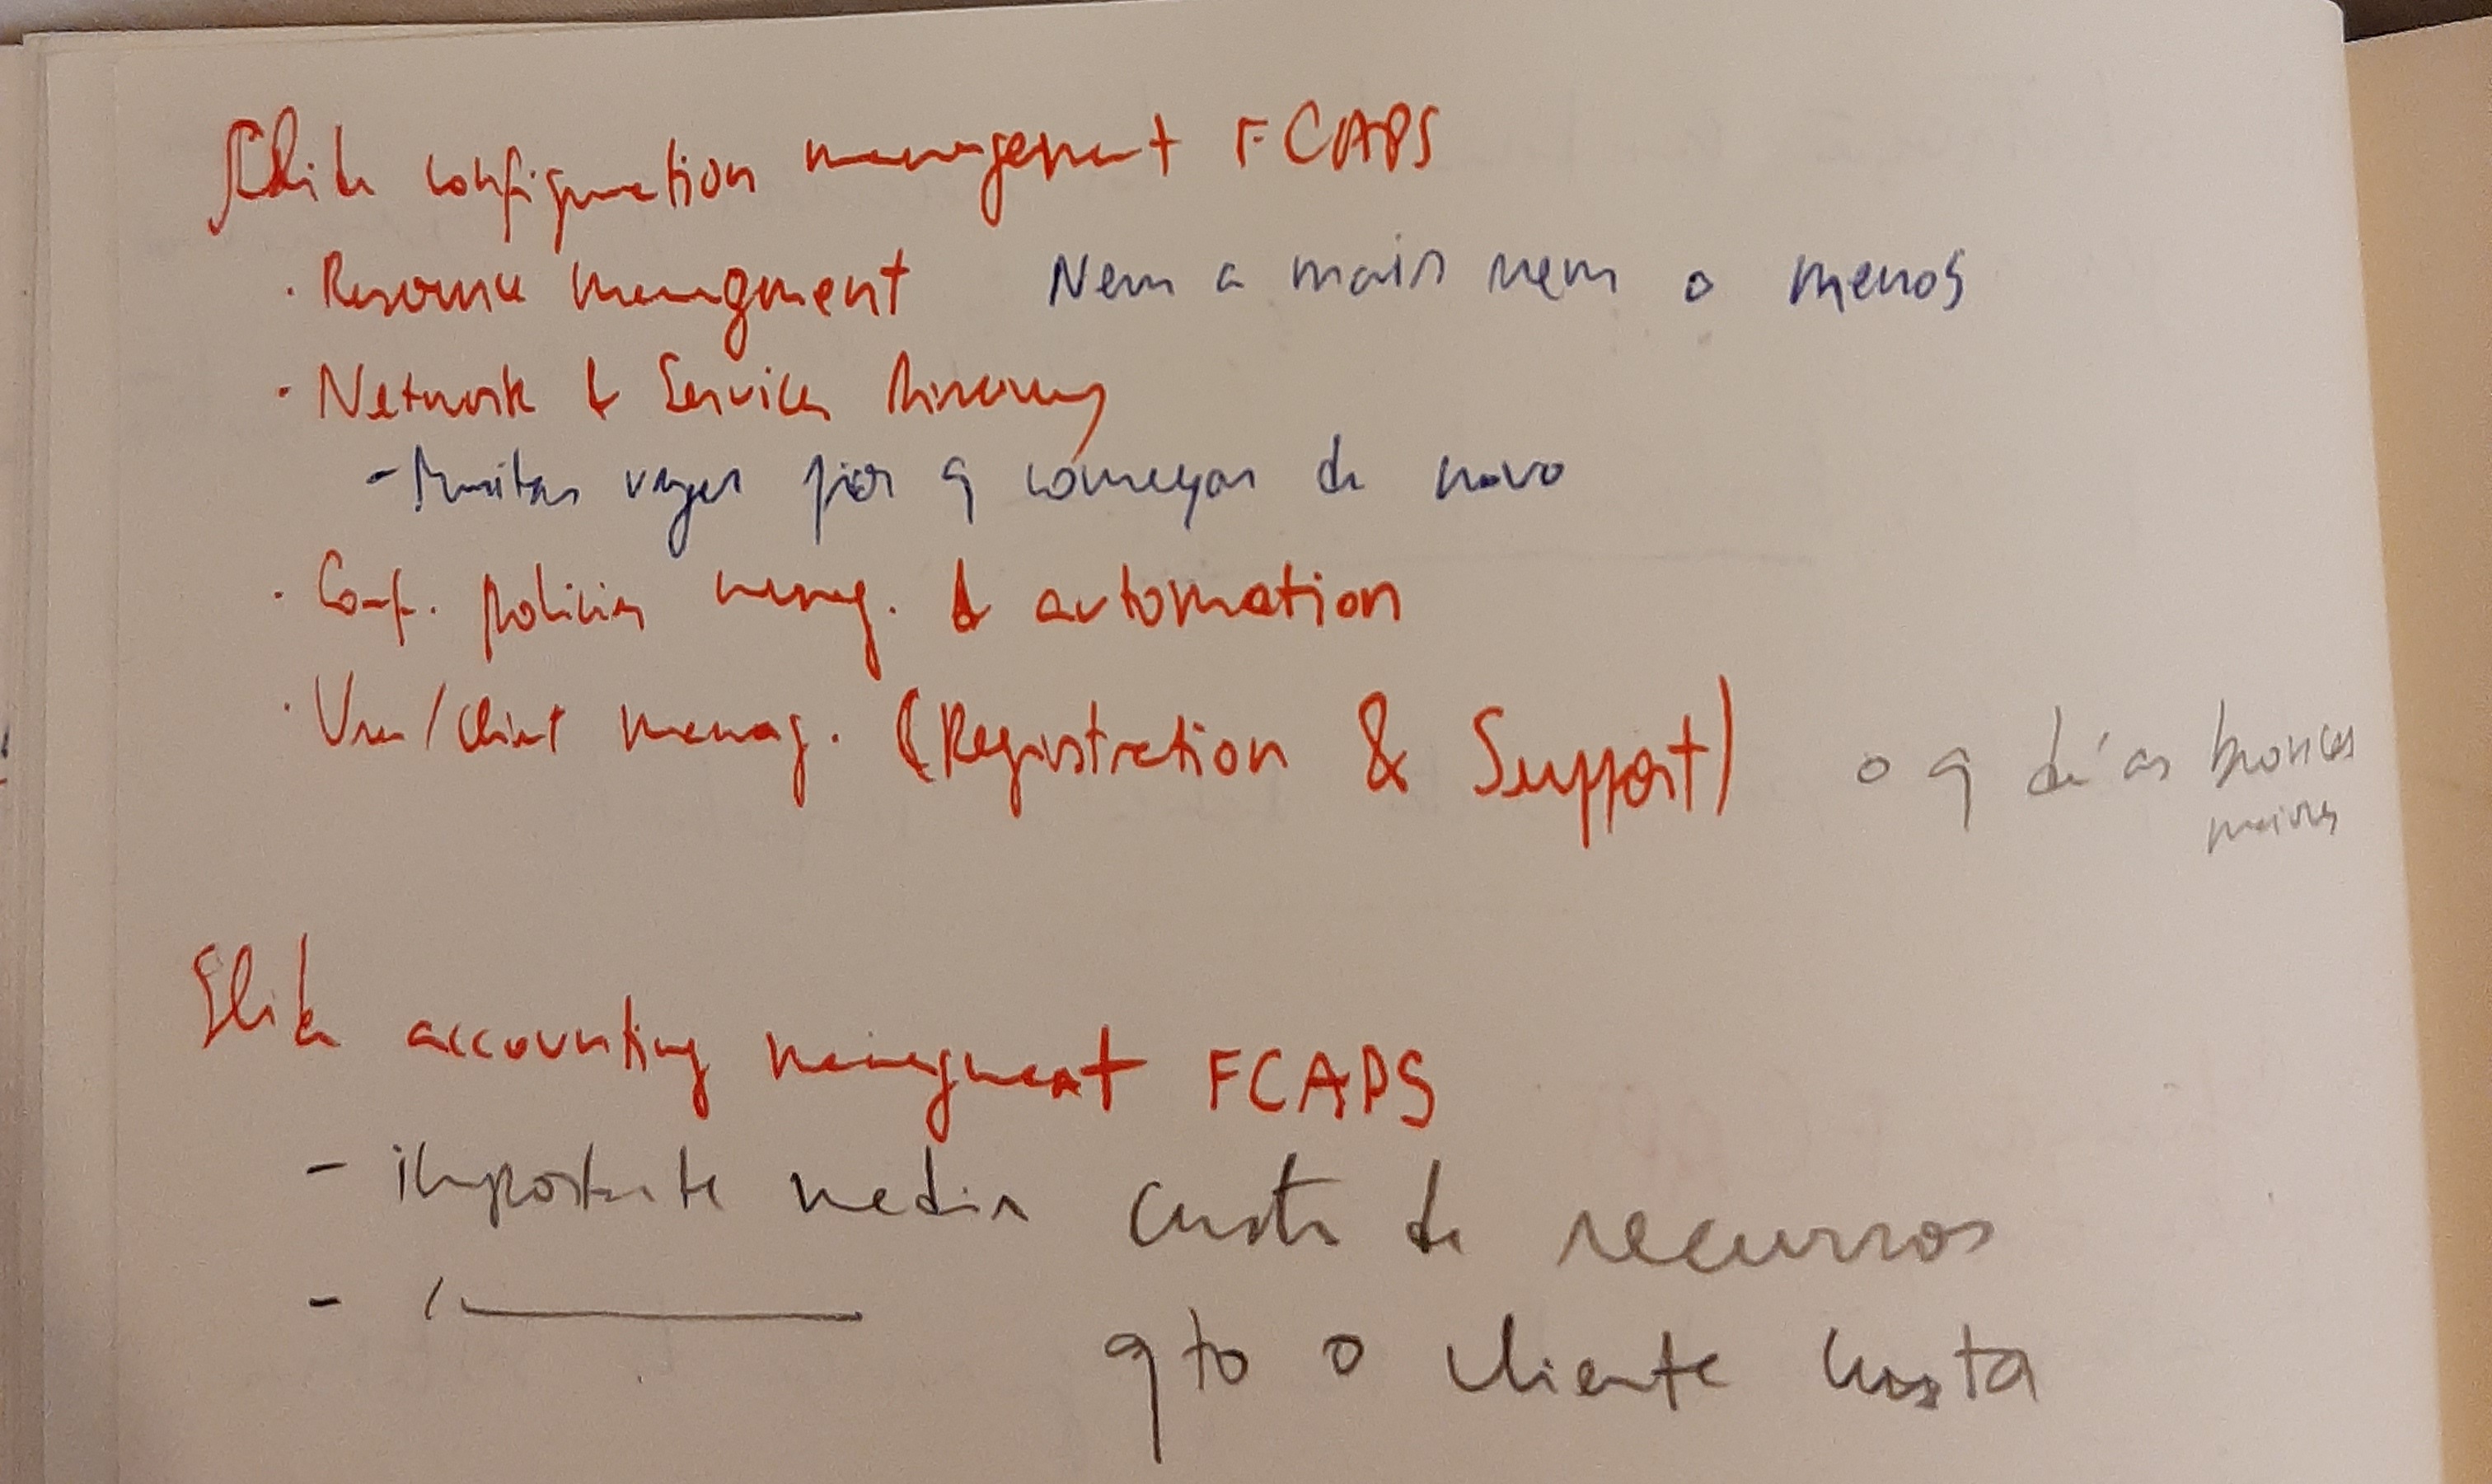 Slide configuration management FCAPS
· Resource managment Nem a mais nem a menos
· Network & Services Discovery
- Muitas vezes pior q começar de novo
· Conf. policies manag. & automation
· User/client manag. (Registration & Support) o q dá as broncas
maiores
Slide accounting managment FCAPS
- importante medir custo de recursos
- qto o cliente custa